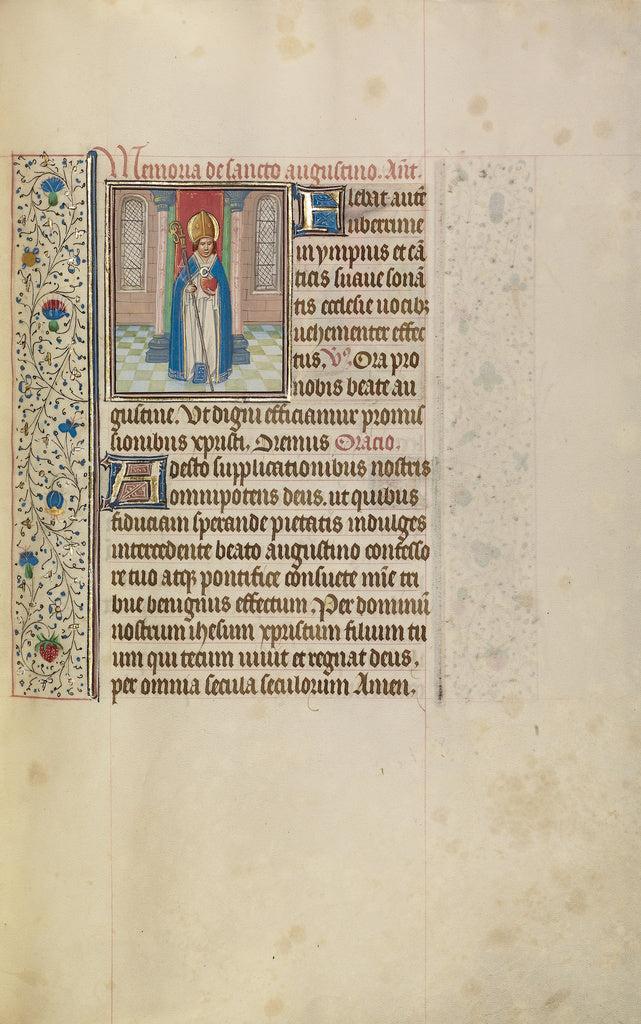 Memoria de sancto augustino. Añt.
Flebat autē
uberrime
in ympnis et cā
ticis suaue sonā
tis ecclesie uocibꝫ
uehementer effec
tus, V̾. Ora pro
nobis beate au
gustine. Vt digni efficiamur promis
sionibus xpristi. Oremus Oracio.
Adesto supplicationibus nostris
omnipotens deus. ut quibus
fiduciam sperande pietatis indulges
intercedente beato augustino confesso
re tuo atqꝫ pontifice cōsuete mīe tri
bue benignus effectum. Per dominū
nostrum ihesum xpristum filium tu
um qui tecum uiuit et regnat deus.
per omnia secula seculorum Amen.